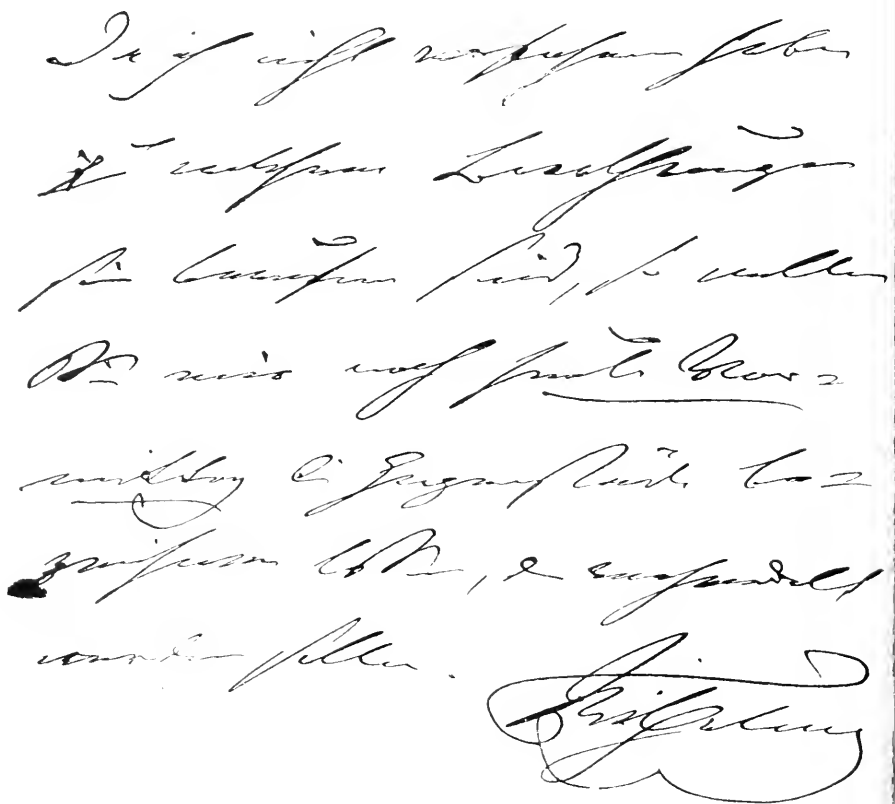 Da ich nicht habe
zu welchen Berathungen
Sie berufen sind, so wollen
Sie mir noch heute Vor=
mittag die Gegenstände be=
zeichnen, die
werden sollen.
Wilhelm